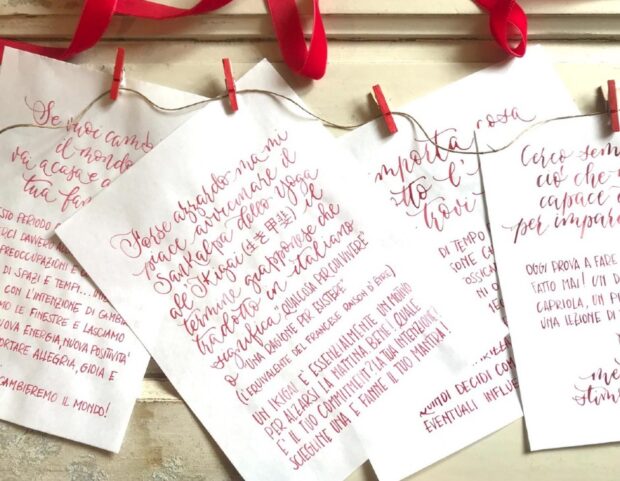 Se vuoi
il mondo
va a casa e
tua fam
PERIODO
DAVVERO
PREOCCUPAZIONI E
DI SPAZI E TEMPI...
CON L'INTENZIONE DI
LE FINESTRE E LASCIAMO
NUOVA ENERGIA, NUOVA POSITIVITA'
PORTARE ALLEGRIA, GIOIA E
CAMBIEREMO IL MONDO!
Forse azzardo, ma mi
piace avvicinare il
Sankalpa dello yoga
al Ikigai 生き甲斐 il
termine giapponese che
tradotto in italiano
significa "QUALCOSA PER CUI VIVERE"
O "UNA RAGIONE PER ESISTERE"
(L'EQUIVALENTE DEL FRANCESE RAISON D'ÊTRE)
UN IKIGAI È ESSENZIALMENTE UN MOTIVO
PER ALZARSI LA MATTINA. BENE! QUALE
È IL TUO COMMITMENT? LA TUA INTENZIONE?
SCIEGLINE UNA E FANNE IL TUO MANTRA!
importa cosa
sotto l'
trovi
DI TEMPO
SOME CA
OSSIG
QUINDI DECIDI CON
EVENTUALI INFLUE
Cerco sem
ciò che
capace
per impara
OGGI PROVA A FARE
FATTO MAI! UN D
CAPRIOLA, UN P
UNA LEZIONE DI
me